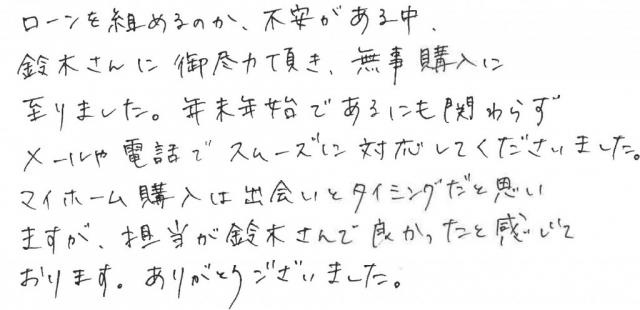 ローンを組めるのか、不安がある中、
鈴木さんに御尽力頂き、無事購入に
至りました。年末年始であるにも関わらず
メールや電話でスムーズに対応してくださいました。
マイホーム購入は出会いとタイミングだと思い
ますが、担当が鈴木さんで良かったと感じて
おります。ありがとうございました。